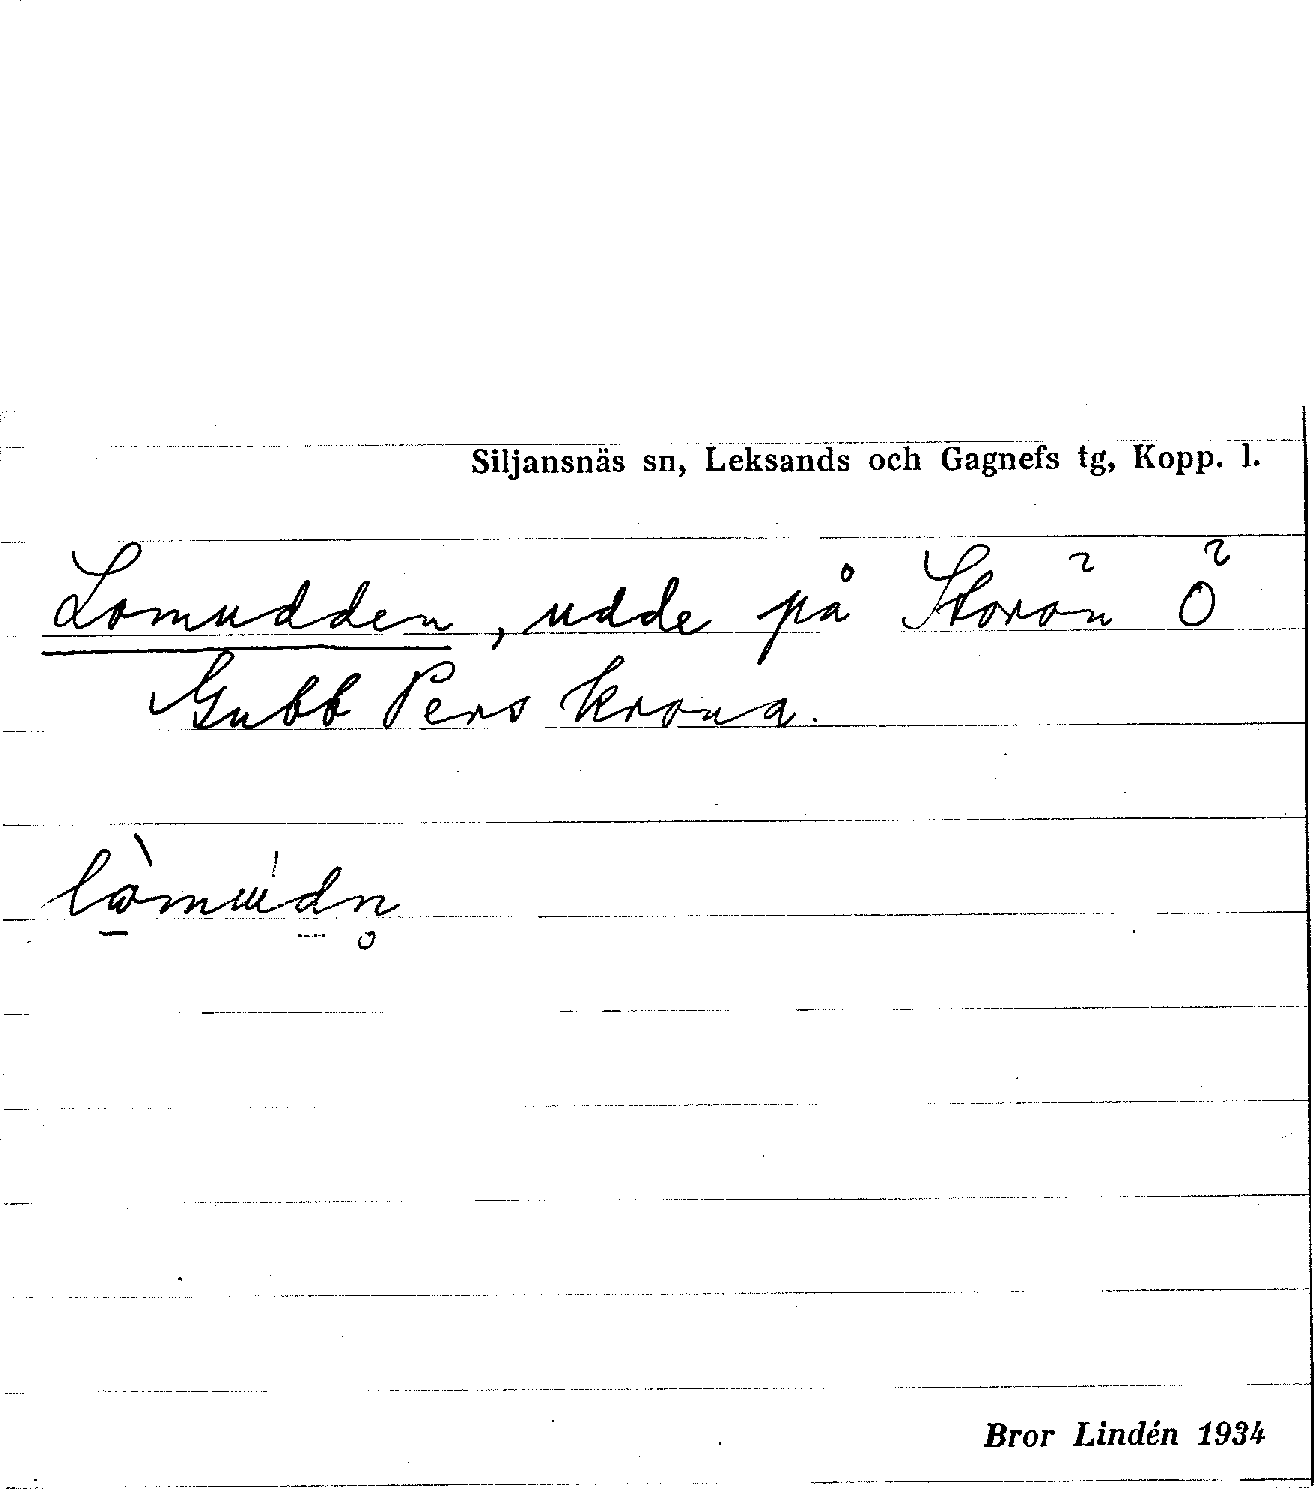 Siljansnäs sn, Leksands och Gagnefs tg, Kopp. l.
Lomudden, udde på Storön Ö
Gubb Pers krona.
Bror Lindén 1934